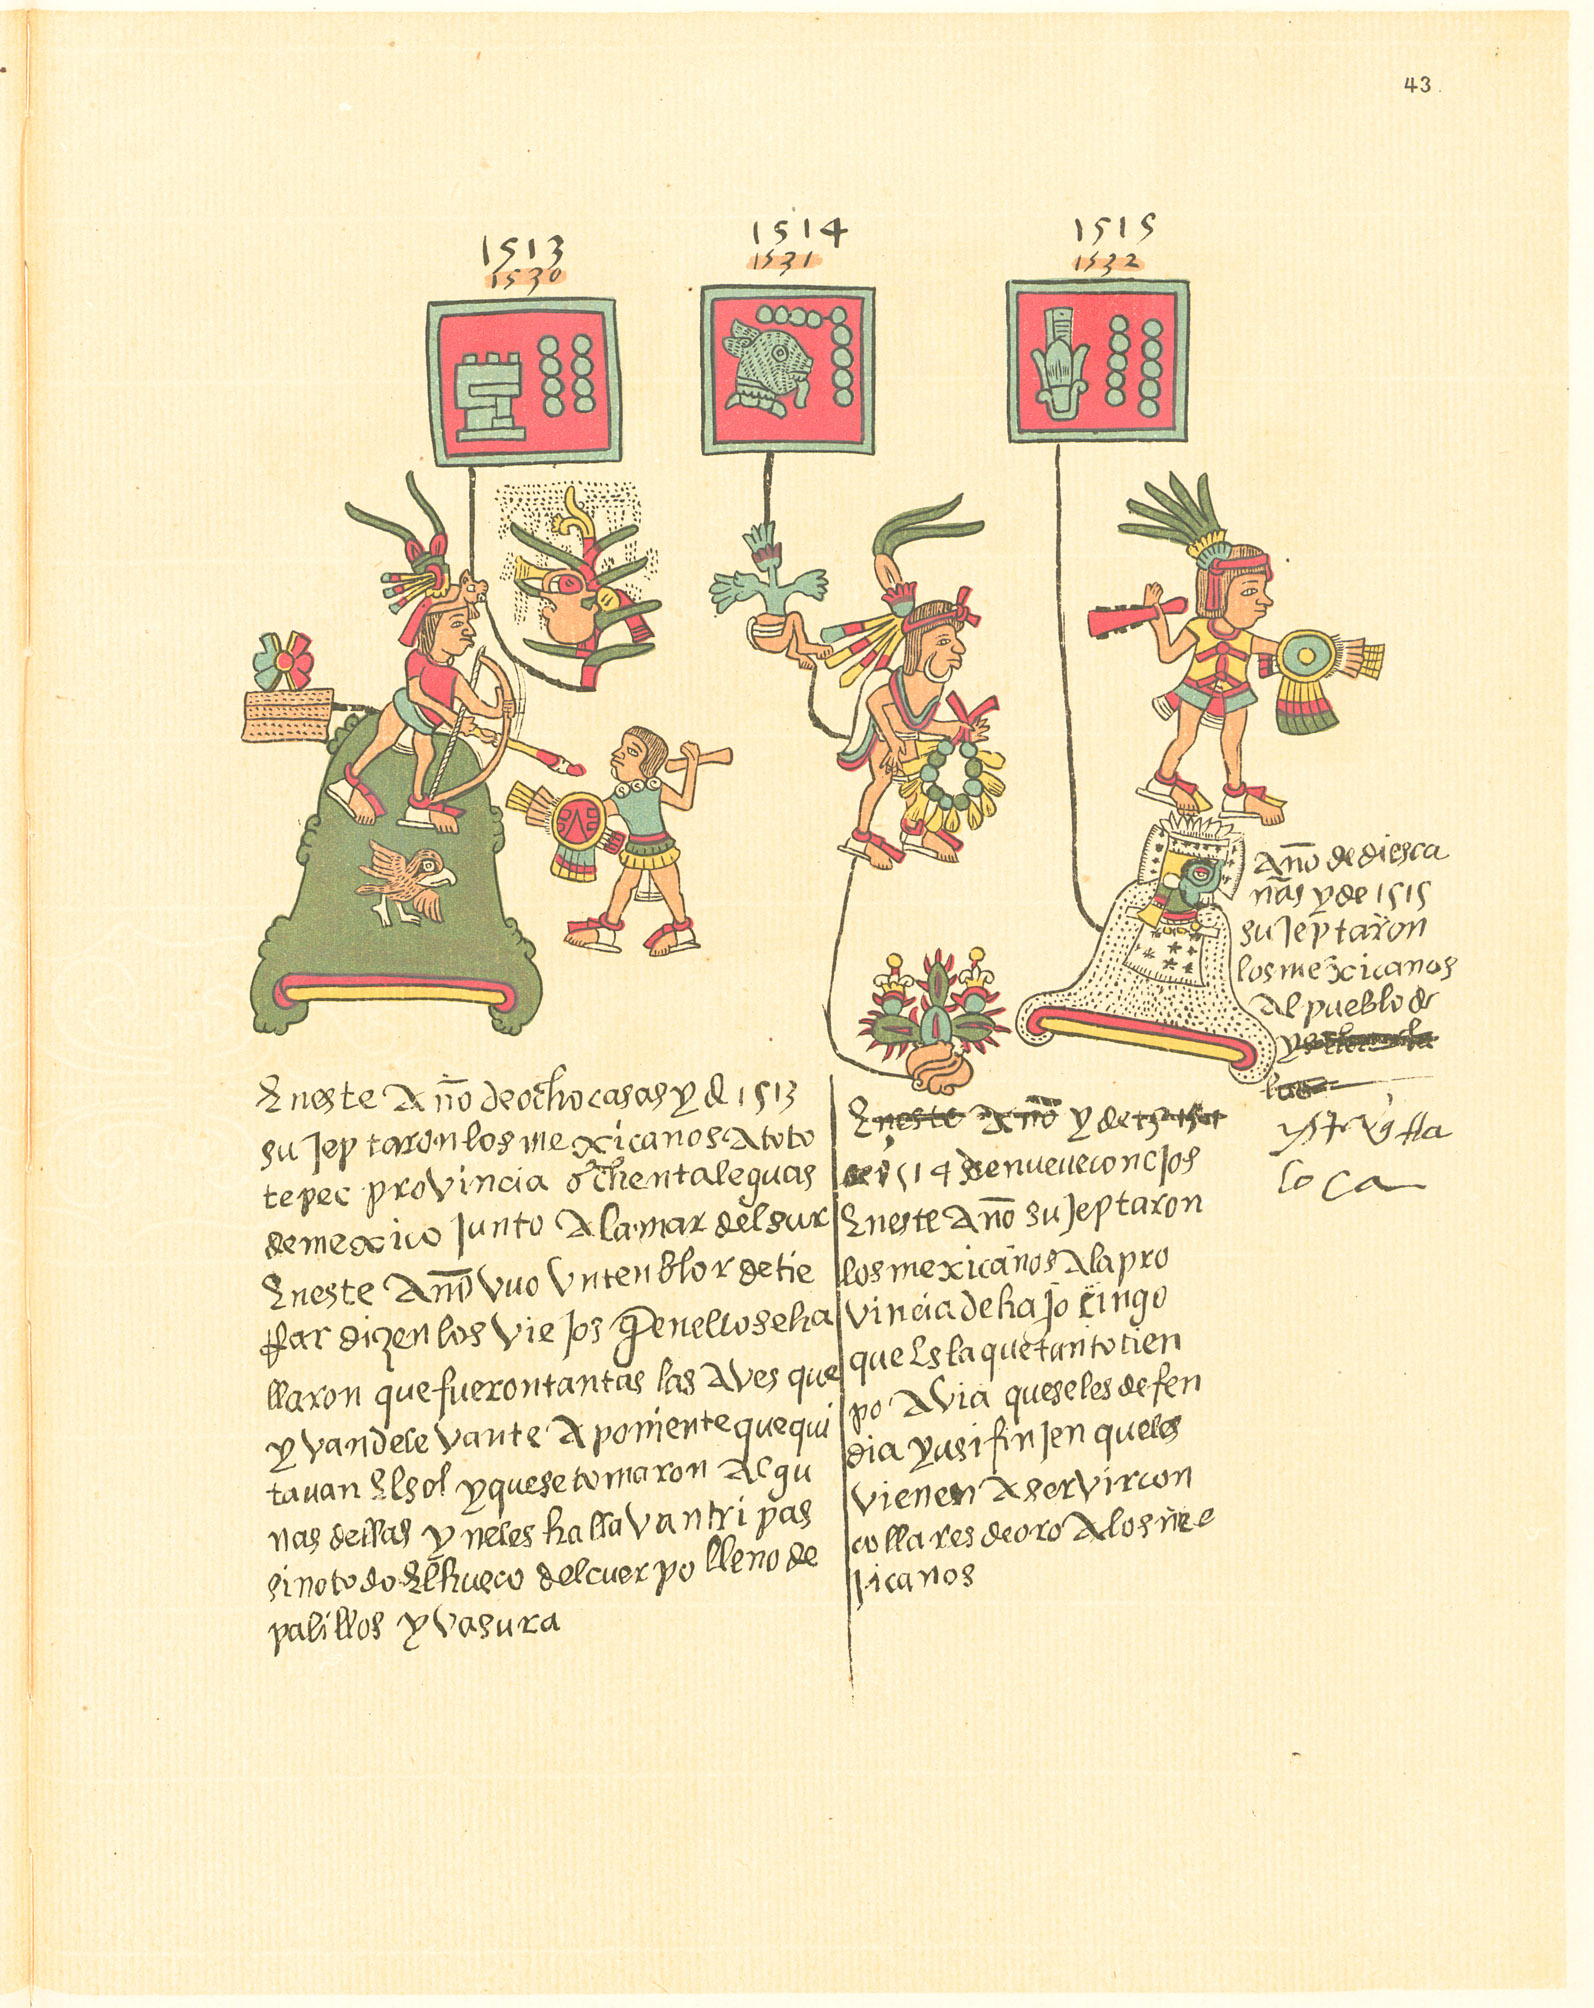 43
1513
1530
1514
1531
1515
1532
Año de diesca
ñas y de 1515
sujeptaron
los mexicanos
al pueblo de
loca
Eneste Año de ocho casas y d 1513
sujeptaron los mexicanos a toto
tepec provincia ochenta leguas
de mexico junto a la mar del sur
Eneste Año vuo vn tenblor de tie
rrar dizen los viejos q enellos se ha
llaron que fueron tantas las aves que
yvan de levante a poniente que qui
tavan el sol y que se tomaron algu
nas dellas y no les hallavan tripas
sino todo el hueco del cuerpo lleno de
palillos y vasura
Eneste Año y de
1514 de nueve conejos
Eneste Año sujeptaron
los mexicanos a la pro
vincia de hajoçingo
que es la que tanto tien
po avia que se les defen
dia y asi finjen que les
vienen a servir con
collares de oro a los me
jicanos